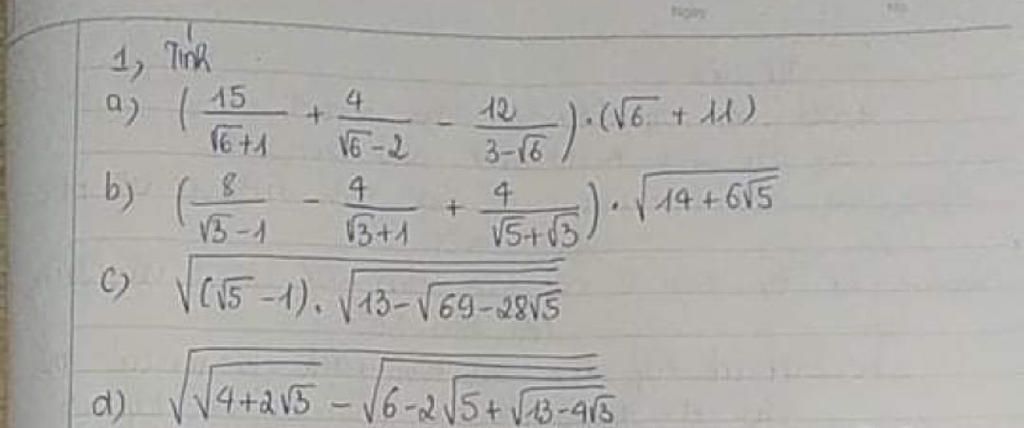 Ngày No
1, Tính
a) (15/(√6+1) + 4/(√6-2) - 12/(3-√6)) · (√6 + 11)
b) (8/(√3-1) - 4/(√3+1) + 4/(√5+√3)) · √(14+6√5)
c) √((√5-1) · √(13-√(69-28√5)))
d) √(√(4+2√3) - √(6-2√(5+√(13-4√3))))